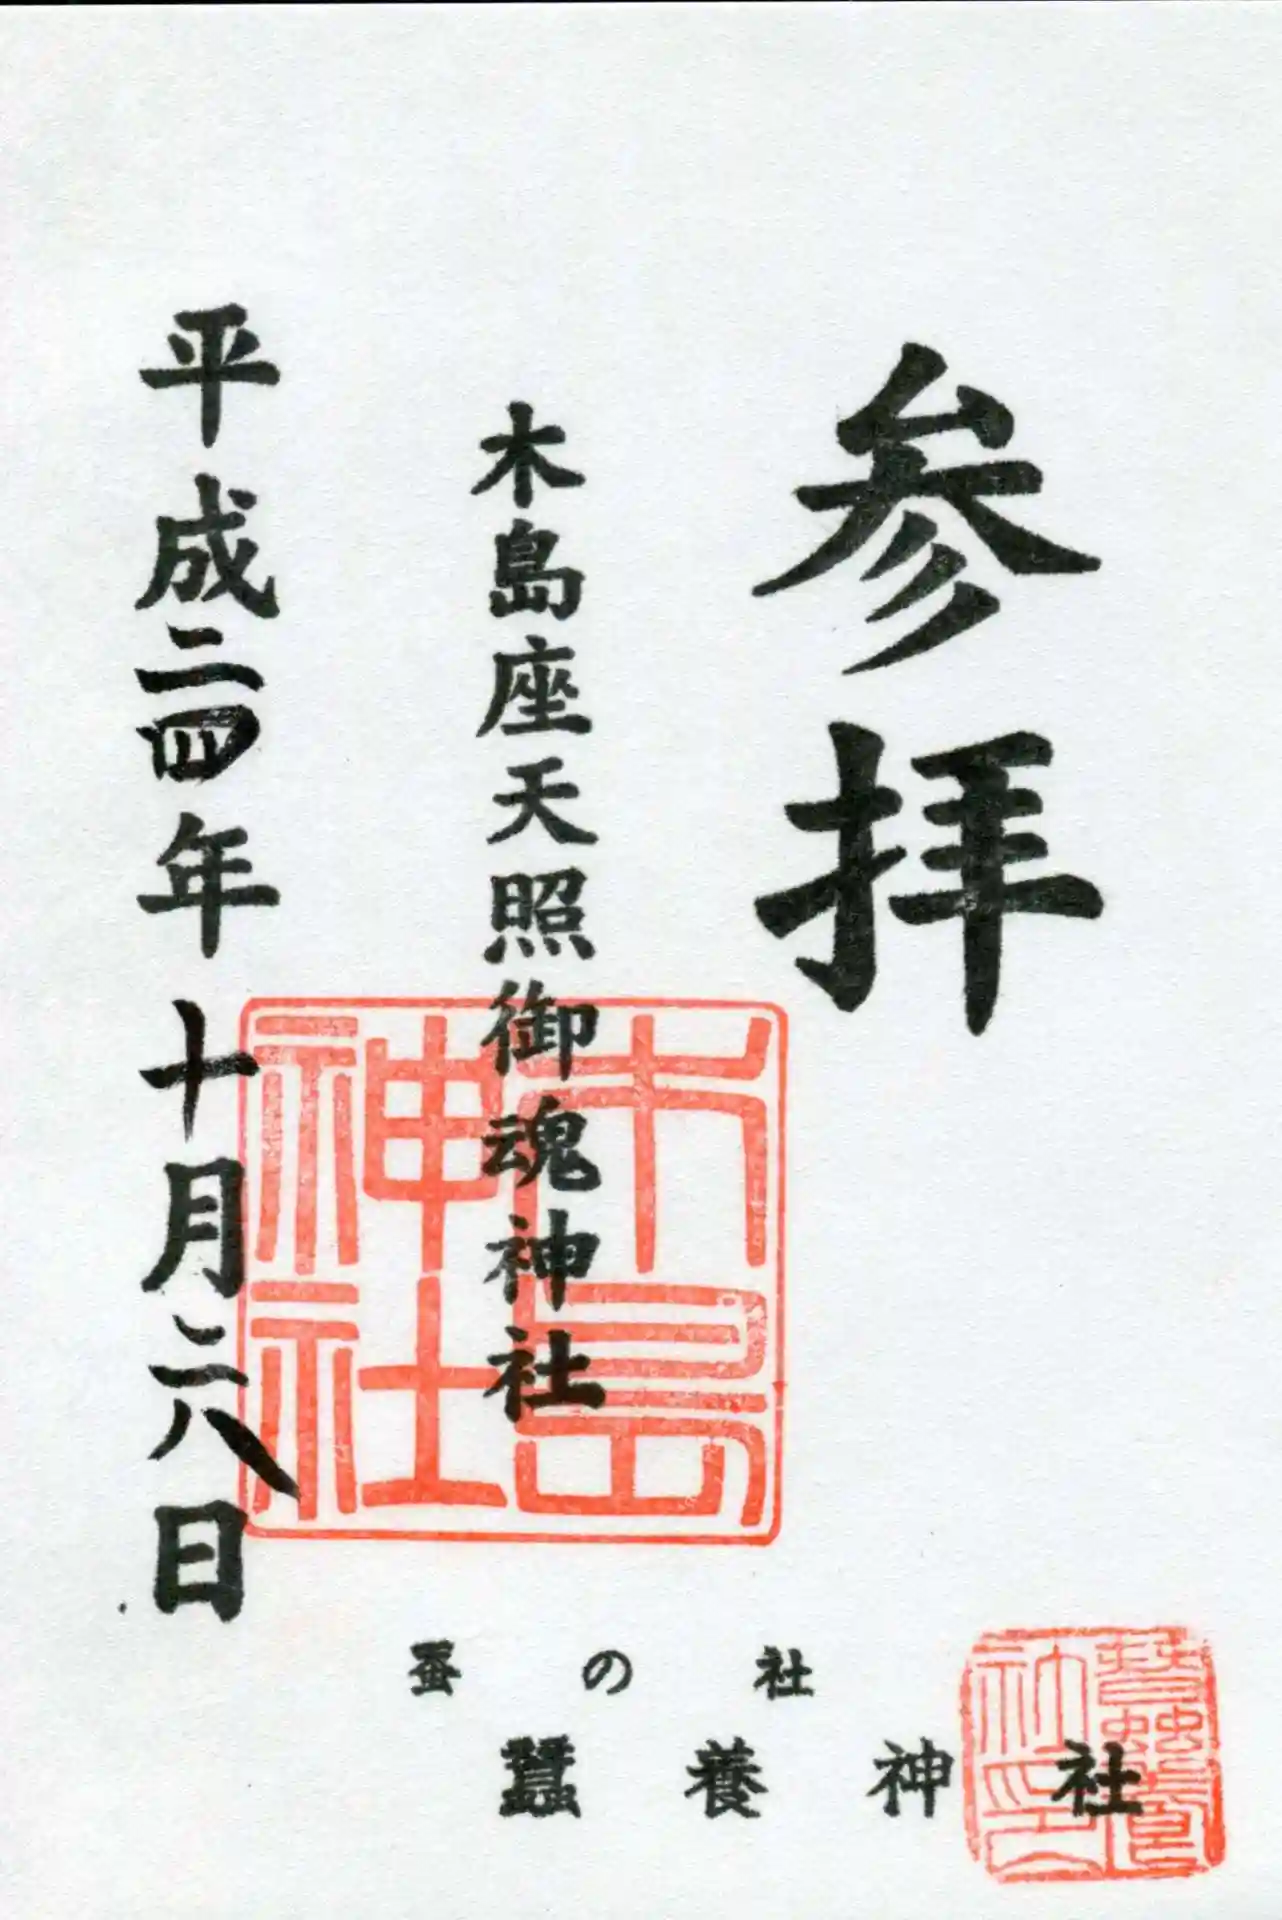 参拝
木島座天照御魂神社
平成二四年十月二八日
木島
神社
蚕の社
蠶養神社